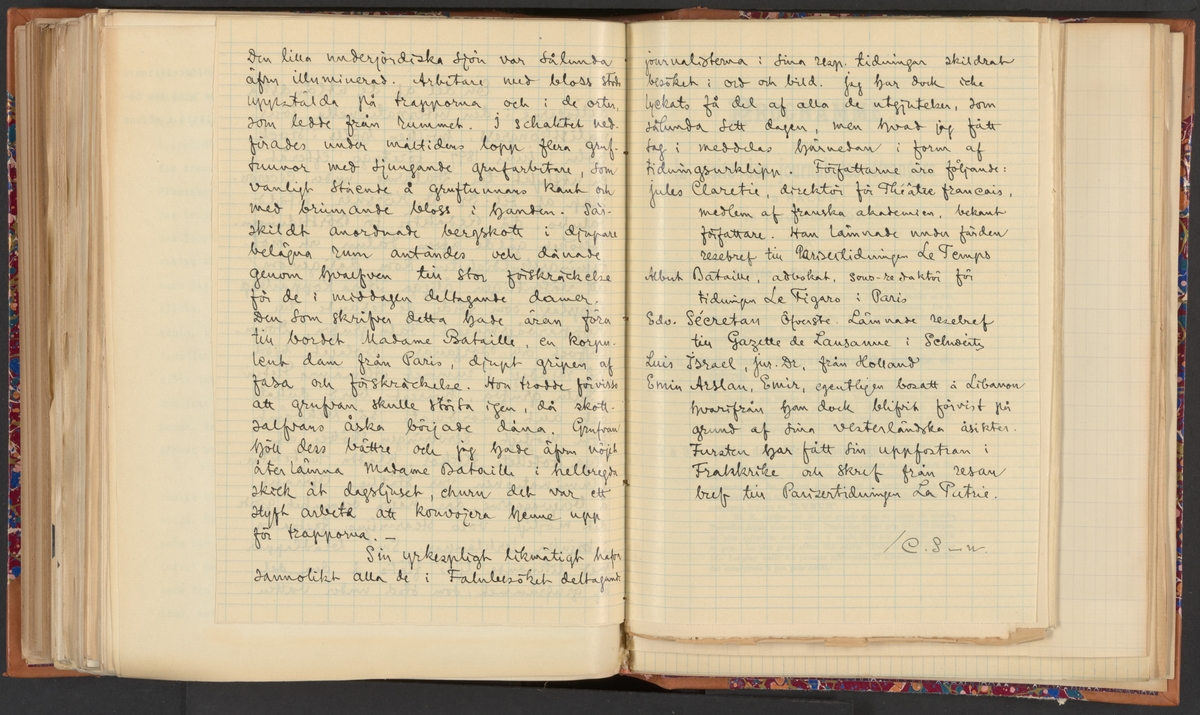 Den lilla underjordiska sjön var sålunda
äfven illuminerad. Arbetare med bloss stodo
uppstälda på trapporna och i de orter,
som ledde från rummet. I schaktet ned-
förades under måltidens lopp flera gruf-
tunnor med sjungande grufarbetare, som
vanligt stående å gruftunnans kant och
med brinnande bloss i handen. Sär-
skildt anordnade bergskott i djupare
belägna rum antändes och dånade
genom hvalfven till stor förskräckelse
för de i middagen deltagande damer.
Den som skrifver detta hade äran föra
till bordet Madame Bataille, en korpu-
lent dam från Paris, djupt gripen af
fasa och förskräckelse. Hon trodde förvisso
att grufvan skulle störta igen, då skott-
salfvans åska började dåna. Grufvan
höll dess bättre och jag hade äfven nöjet
återlämna Madame Bataille i helbregda
skick åt dagsljuset, ehuru det var ett
styft arbete att konvojera henne upp
för trapporna. —
Sin yrkesplight likmätigt hafva
sannolikt alla de i Falubesöket deltagande
journalisterna i sina resp. tidningar skildrat
besöket i ord och bild. Jag har dock icke
lyckats få del af alla de utgjutelser, som
sålunda sett dagen, men hvad jag fått
tag i meddelas härnedan i form af
tidningsurklipp. Författarne äro följande:
Jules Claretie, direktör för Théâtre francais,
medlem af franska akademien, bekant
författare. Han lämnade under färden
resebref till Parisertidningen Le Temps
Albert Bataille, advokat, sous-redaktör för
tidningen Le Figaro i Paris
Edv. Sécretan Öfverste. Lämnade resebref
till Gazette de Lausanne i Schweitz
Luis Israel, jur. Dr, från Holland
Emin Arslan, Emir, egentligen bosatt å Libanon
hvarifrån han dock blifvit förvist på
grund af sina vesterländska åsikter.
Fursten har fått sin uppfostran i
Frankrike och skref från resan
bref till Parisertidningen La Patrie.
/C. S—n.